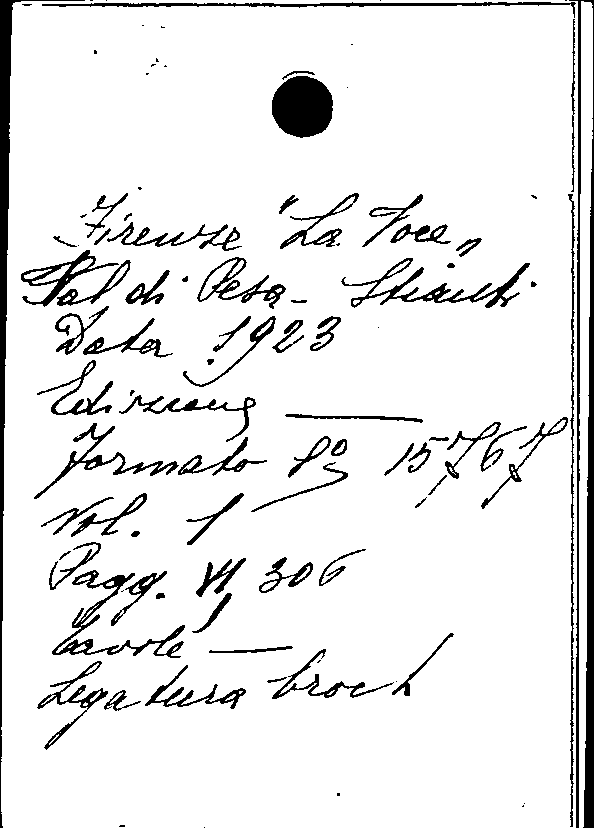 Firenze "La Voce"
Val di Pesa - Stianti
Data 1923
Edizione —
formato 8º 15767
Vol. 1
Pagg. VI, 306
tavole —
Legatura broch